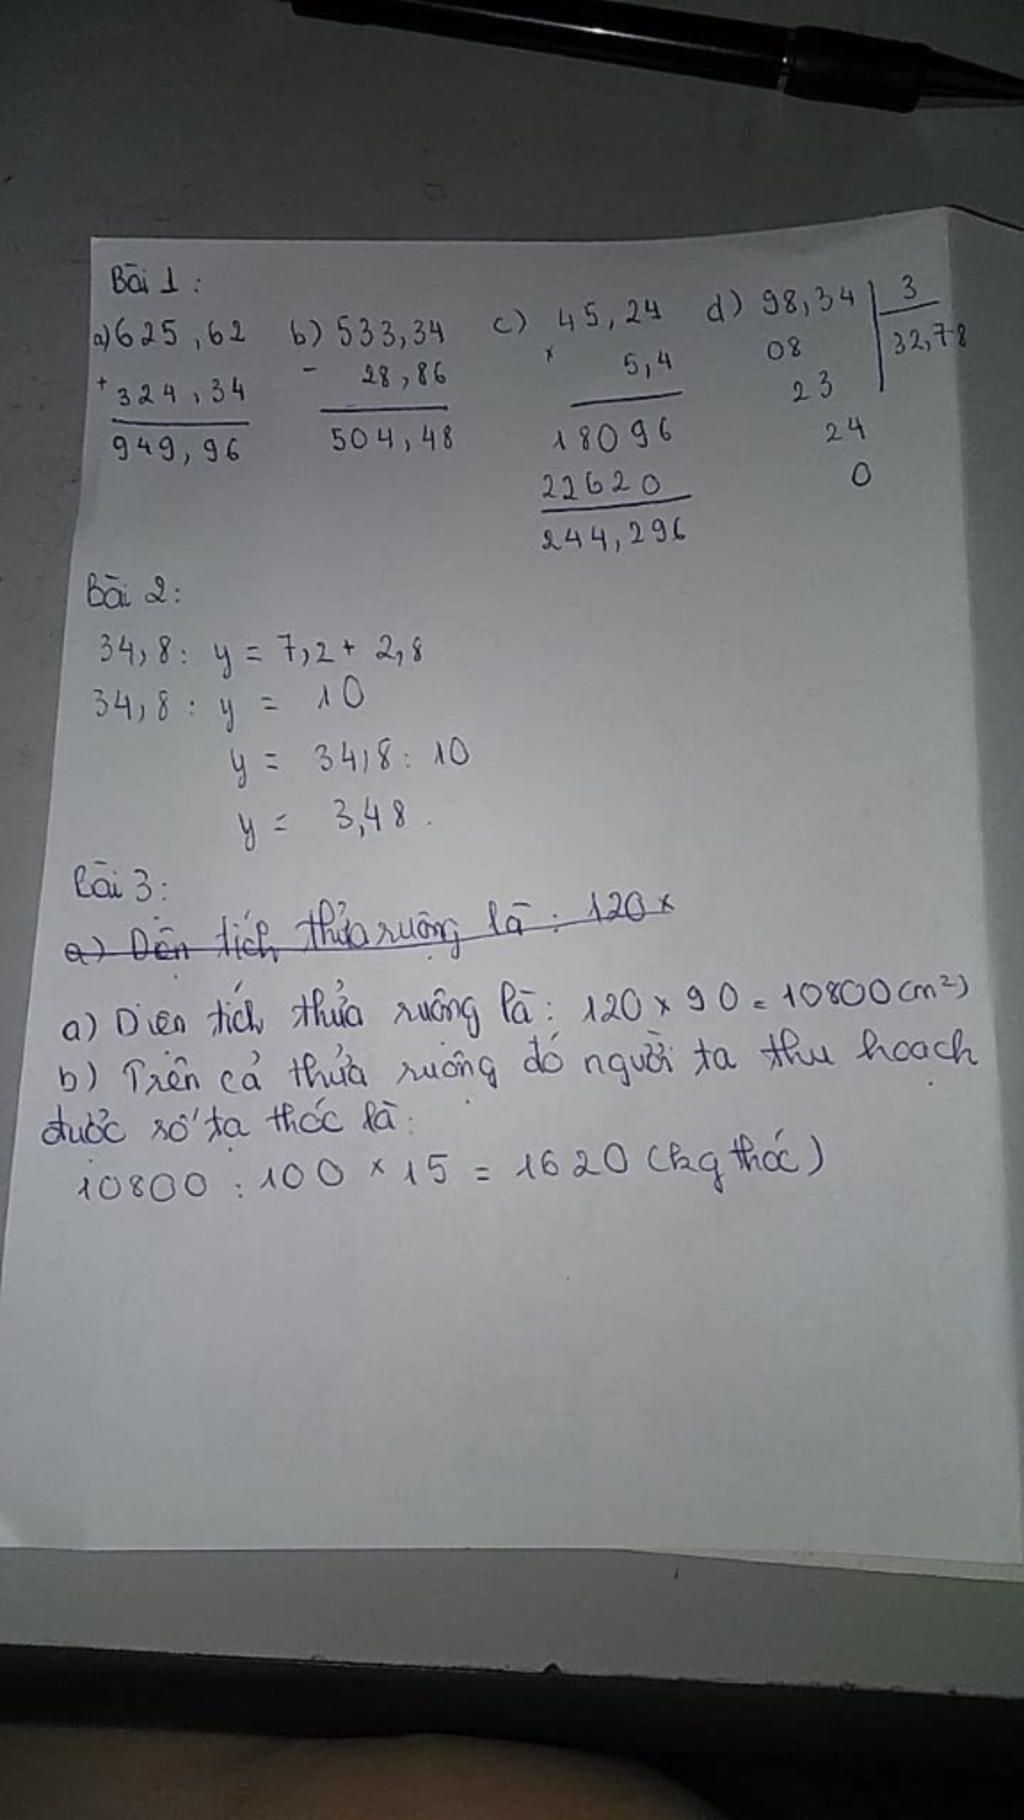 Bài 1:
a) 625,62 b) 533,34 c) 45,24 d) 98,34 | 3
+ 324,34 - 28,86 x 5,4 08 32,78
949,96 504,48 18096 23
22620 24
244,296 0
Bài 2:
34,8 : y = 7,2 + 2,8
34,8 : y = 10
y = 34,8 : 10
y = 3,48.
Bài 3:
a) Dện tích thửa ruộng là : 120 x
a) Diên tích thửa ruộng là : 120 x 90 = 10800 (m²)
b) Trên cả thửa ruộng đó người ta thu hoạch
được số tạ thóc là:
10800 : 100 x 15 = 1620 (kg thóc)